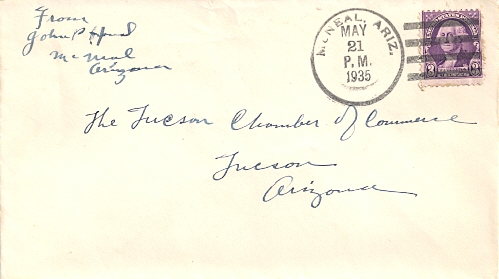 From
John P
McNeal
Arizona
McNEAL, ARIZ.
MAY
21
P. M.
1935
3 3
The Tucson Chamber of Commerce
Tucson
Arizona